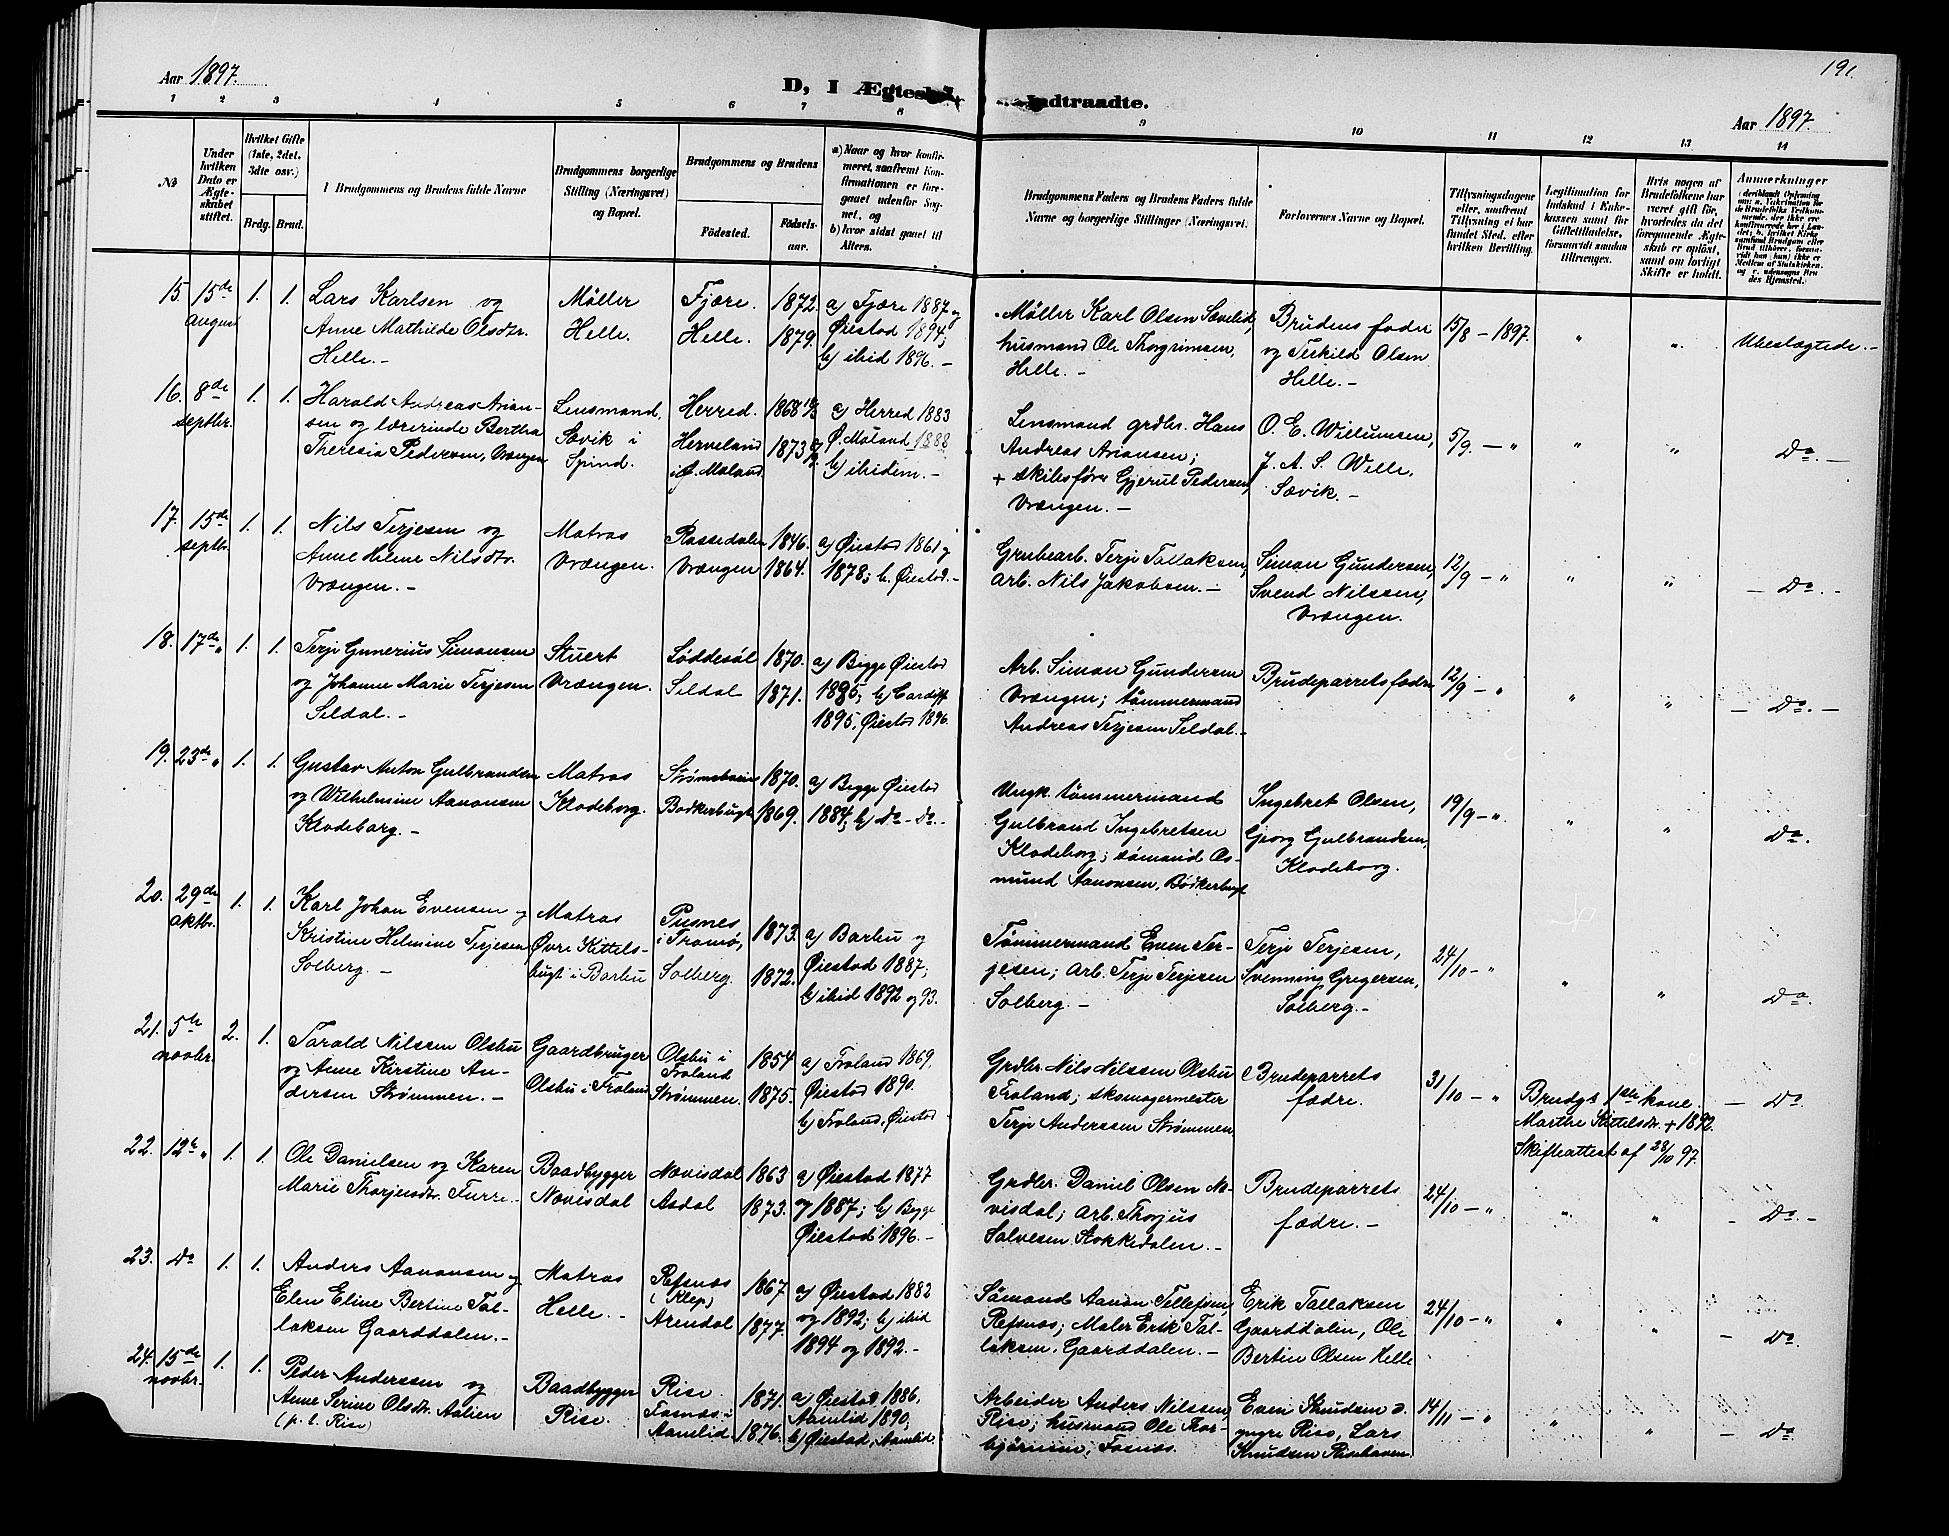 Aar 1897.
D, I Ægtes
Indtraadte.
191.
Aar 1897.
1 2 3 4 5 6 7 8 9 10 11 12 13 14
№
Under hvilken Dato er Ægteskabet stiftet.
Hvilket Gifte (1ste, 2det, 3dte osv.)
Brdg. Brud.
Brudgommens og Brudens fulde Navne
Brudgommens borgerlige Stilling (Næringsvei) og Bopæl.
Brudgommens og Brudens
Fødested.
Fødselsaar.
a) Naar og hvor konfirmeret, saafremt Konfirmationen er foregaaet udenfor Sognet, og
b) hvor sidst gaaet til Alters.
Brudgommens Faders og Brudens Faders fulde Navne og borgerlige Stillinger (Næringsvei).
Forlovernes Navne og Bopæl.
Tillysningsdagene eller, saafremt Tillysning ei har fundet Sted, efter hvilken Bevilling.
Legitimation for Indskud i Enkekassen samt for Giftetilladelse, forsaavidt saadan tiltrænges.
Hvis nogen af Brudefolkene har været gift før, hvorledes da det foregaaende Ægteskab er opløst, samt om lovligt Skifte er holdt.
Anmerkninger
15. 15de august 1. 1.
Lars Karlsen og
Anne Mathilde Olsdtr.
Helle.-
Møller
Helle.
Fjære.
Helle.
1872.
1879.
a) Fjære 1887 og
Øiestad 1894;
b) ibid 1896.-
Møller Karl Olsen Sævelid,
husmand Ole Thorgrimsen,
Helle.-
Brudens fader
og Terkild Olsen
Helle.-
15/8 - 1897.
"
"
Ubeslægtede.-
16. 8de septbr. 1. 1.
Harald Andreas Arian-
sen og lærerinde Bertha
Theresia Pedersen, Vrængen
Lensmand,
Sævik i
Spind.
Herred.
Herveland
i Ø. Moland
1868
1873
a) Herred 1883
Ø. Moland 1888
b) ibidem.-
Lensmand grdbr. Hans
Andreas Ariansen;
+ skibsfører Gjerul Pedersen,
Vrængen.-
O. E. Willumsen,
J. A. S. Wille,
Sævik.-
5/9. - "
"
"
Do.-
17. 15de septbr. 1. 1.
Nils Terjesen og
Anne Helene Nilsdtr.
Vrængen.-
Matros
Vrængen.
Rassedalen
Vrængen
1846.
1864.
a) Øiestad 1861 og
1878; b. Øiestad.-
Grubearb. Terje Tallaksen,
Arb. Nils Jakobsen.-
Simon Gundersen,
Svend Nilssen,
Vrængen.
12/9 - "
"
"
- Do.-
18. 17de " 1. 1.
Terje Gunerius Simonsen
og Johanne Marie Terjesen
Seldal.-
Stuert
Vrængen.
Løddesøl
Seldal
1870.
1871.
a) Begge Øiestad
1885; b) Cardiff
1895, Øiestad 1896.
Arb. Simon Gundersen
Vrængen; tømmermand
Andreas Terjesen Seldal.-
Brudeparrets fædre
12/9 - "
"
"
- Do.-
19. 23de " 1. 1.
Gustav Anton Gulbrandsen
og Wilhelmine Aanonsen
Klodeborg.-
Matros
Klodeborg.
Bødkerbugt
1870.
1869.
a) Begge Øiestad
1884; b) Do - Do.-
Ungk. tømmermand
Gulbrand Ingebretsen
Klodeborg; sømand Os-
mund Aanonsen, Bødkerbugt
Ingebret Olsen,
Georg Gulbrandsen,
Klodeborg.
19/9 - "
"
"
Do.
20. 29de oktbr. 1. 1.
Karl Johan Evensen og
Kristine Helmine Terjesen
Solberg.-
Matros
Øvre Kittels-
bugt i Barbu
Pusnes
i Tromø,
Solberg.
1873.
1872.
a) Barbu og
Øiestad 1887;
b) ibid 1892 og 93.
Tømmermand Even Ter-
jesen; Arb. Terje Terjesen
Solberg.-
Terje Terjesen,
Svenning Gregersen,
Solberg.-
24/10 - "
"
"
Do.
21. 5te novbr. 2. 1.
Tarald Nilssen Olsbu
og Anne Kirstine An-
dersen Strømmen.-
Gaardbruger
Olsbu i Froland
Olsbu i
Froland
Strømmen.
1854
1875.
a) Froland 1869.
Øiestad 1890.
b) Froland, Øiestad
Grdbr. Nils Nilssen Olsbu
Froland; skomagermester
Terje Anderssen Strømmen,
Brudeparrets
fædre.
31/10 - "
Brudgs 1ste kone
Marthe Kittelsdtr. + 1892.
Skifteattest af 28/10 97.
- Do.
22. 12te " 1. 1.
Ole Danielsen og Karen
Marie Thorjusdtr. Furre.-
Baadbygger
Nævisdal
Nævisdal
Asdal
1863
1873.
a) Øiestad 1877
og 1887; b) Begge
Øiestad 1896.-
Grdbr. Daniel Olsen Næ-
visdal; Arb. Thorjus
Salvesen Stokkedalen.-
Brudeparrets
fædre.-
24/10 - "
"
"
- Do.-
23. Do 1. 1.
Anders Aanonsen og
Elen Eline Bertine Tal-
laksen Gaarddalen.-
Matros
Helle.-
Refsnæs
(Klep)
Arendal
1867
1877.
a) Øiestad 1882
og 1892; b) ibid
1894 og 1892.-
Sømand Aanon Tellefsen,
Refsnæs; Maler Erik Tal-
laksen, Gaarddalen.-
Erik Tallaksen
Gaarddalen, Ole
Bertin Olsen Helle
24/10 - "
"
"
- Do.
24. 15de novbr. 1. 1.
Peder Anderssen og
Anne Serine Olsdtr. Aalien
(p. t. Rise)
Baadbygger
Rise.
Rise.
Fosnæs i
Aamlid.
1871.
1876.
a) Øiestad 1886,
Aamlid 1890;
b) Øiestad, Aamlid.
Arbeider Anders Nilssen,
Rise; husmand Ole Thor-
bjørnsen, Fosnæs.
Even Knudsen d.
yngre Rise, Lars
Knudsen Risehaven.
14/11 - "
"
"
- Do.